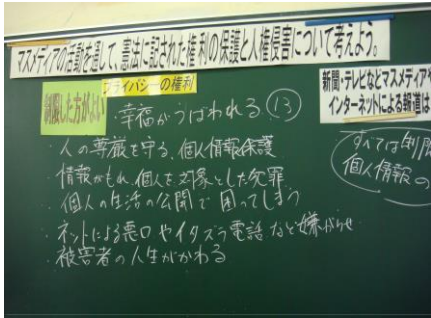 マスメディアの活動を通して、憲法に記された権利の保護と人権侵害について考えよう。
プライバシーの権利
制限した方がよい
幸福がうばわれる ⑬
・人の尊厳を守る、個人情報保護
・情報がもれ、個人を対象とした犯罪
・個人の生活の公開で困ってしまう
・ネットによる悪口やイタズラ電話など嫌がらせ
・被害者の人生がかわる
新聞・テレビなどマスメディアや
インターネットによる報道は
すべては制限
個人情報の